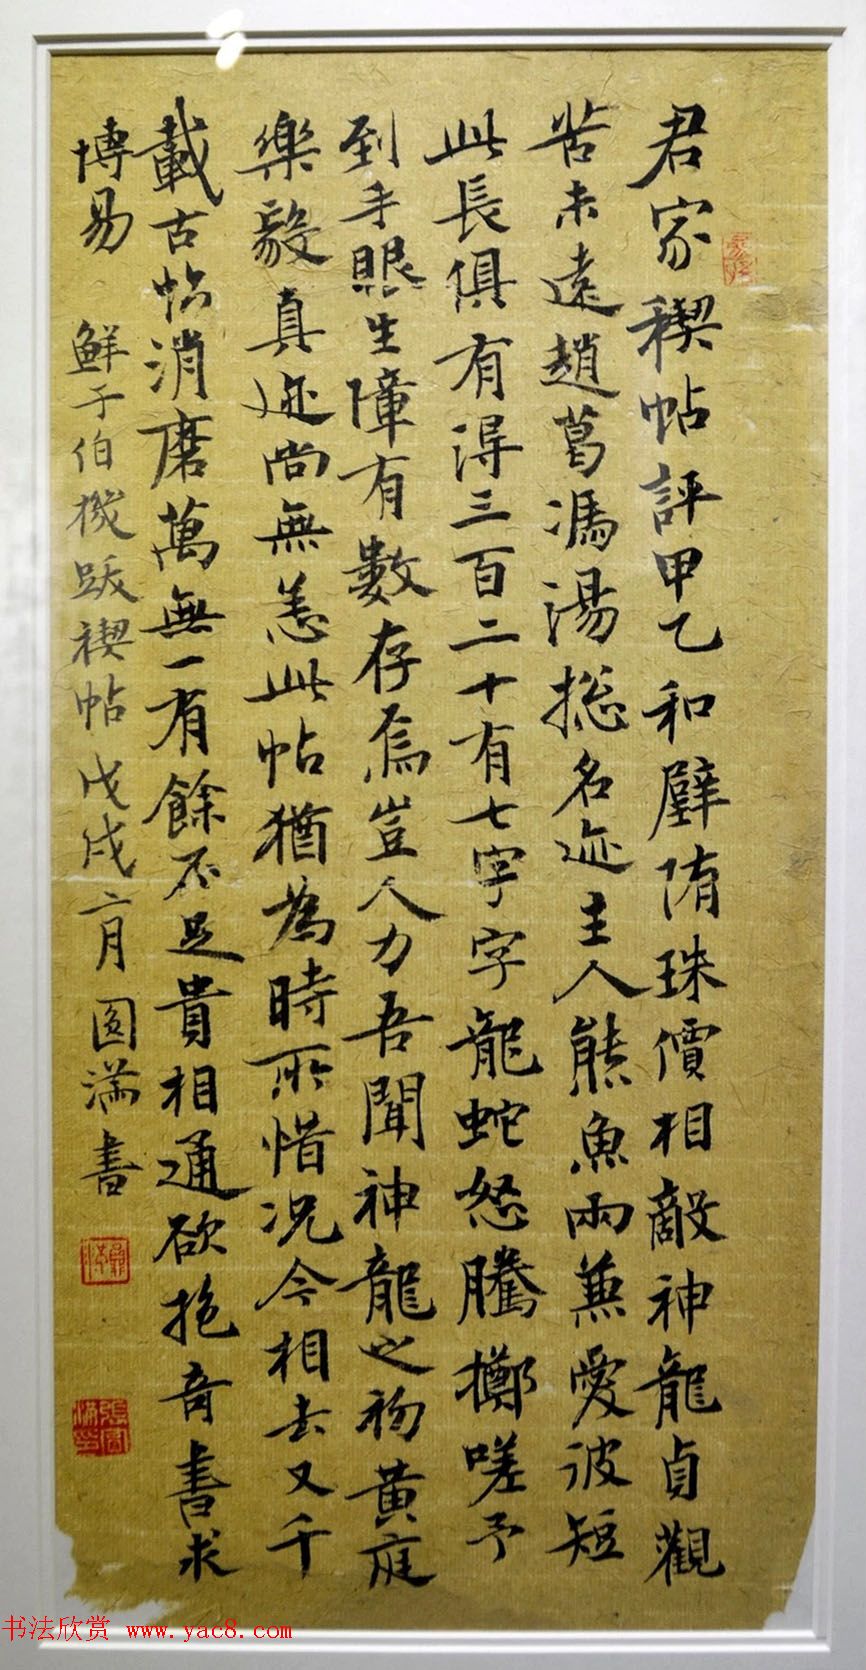 君家稧帖評甲乙和璧隋珠價相敵神龍貞觀
苦未遠趙葛馮湯揔名迹主人熊魚兩兼愛彼短
此長俱有得三百二十有七字字龍蛇怒騰擲嗟予
到手眼生障有數存焉豈人力吾聞神龍之初黃庭
樂毅真迹尚無恙此帖猶為時所惜況今相去又千
載古帖消磨萬無一有餘不足貴相通欲抱奇書求
博易 鮮于伯機跋禊帖戊戌六月圓滿書
书法欣赏 www.yac8.com